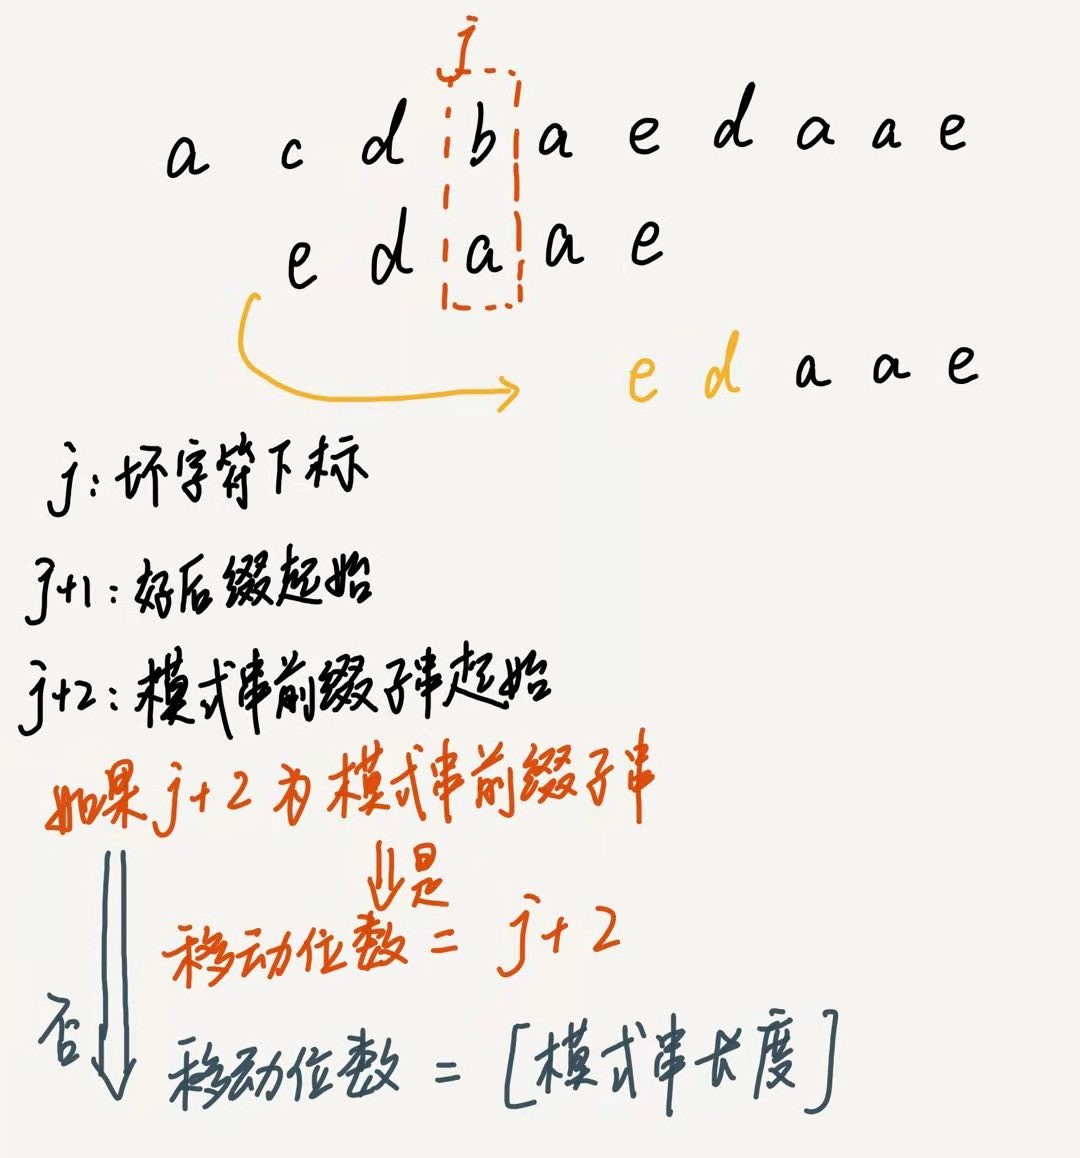 j
a c d b a e d a a e
e d a a e
e d a a e
j: 坏字符下标
j+1: 好后缀起始
j+2: 模式串前缀子串起始
如果j+2为模式串前缀子串
是
移动位数 = j+2
否
移动位数 = [模式串长度]